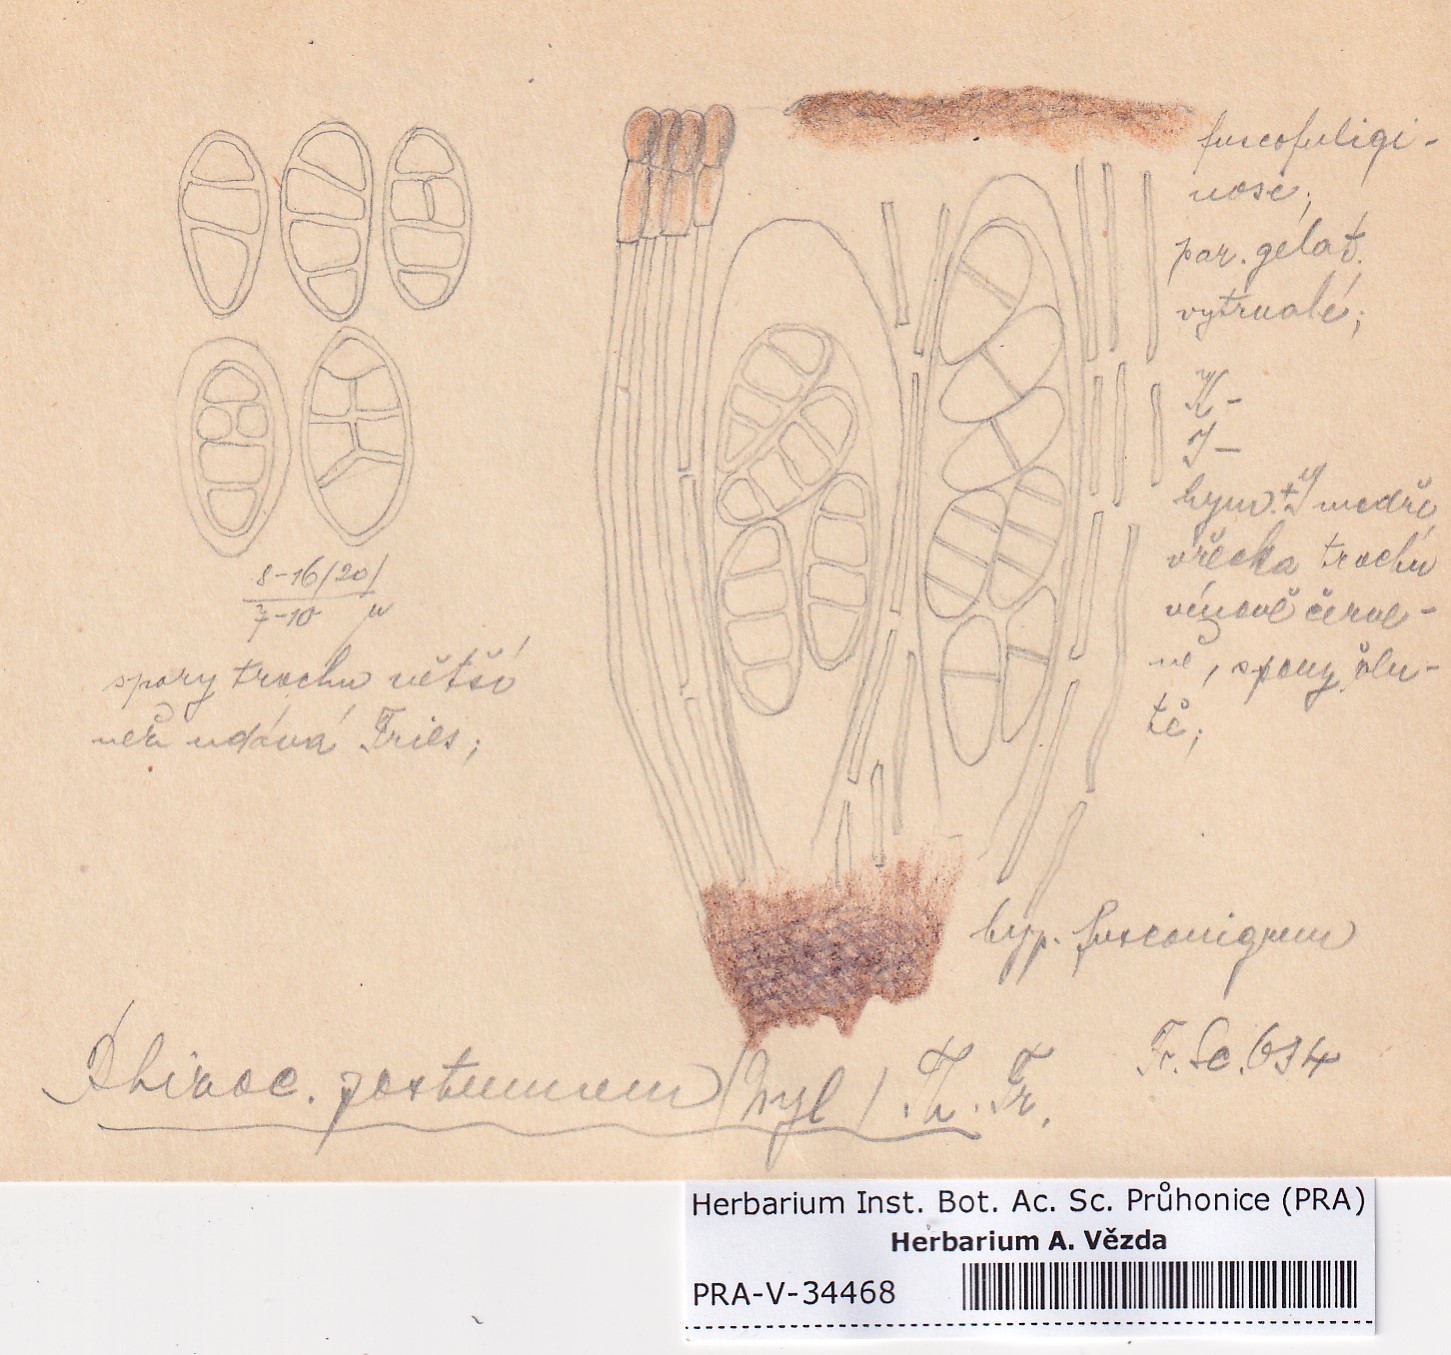 fuscofuligi-
nose;
par. gelat.
vytrvalé;
K-
J-
hym. + J modře
vřecka trochu
vínově červe-
ně, spory žlu-
tě;
8-16/20/
7-10 μ
spory trochu větší
než udává Fries;
hyp. fusconigrum
Rhizoc. postumum /Nyl/ Th. Fr.
Fr. Sc. 634
Herbarium Inst. Bot. Ac. Sc. Průhonice (PRA)
Herbarium A. Vězda
PRA-V-34468